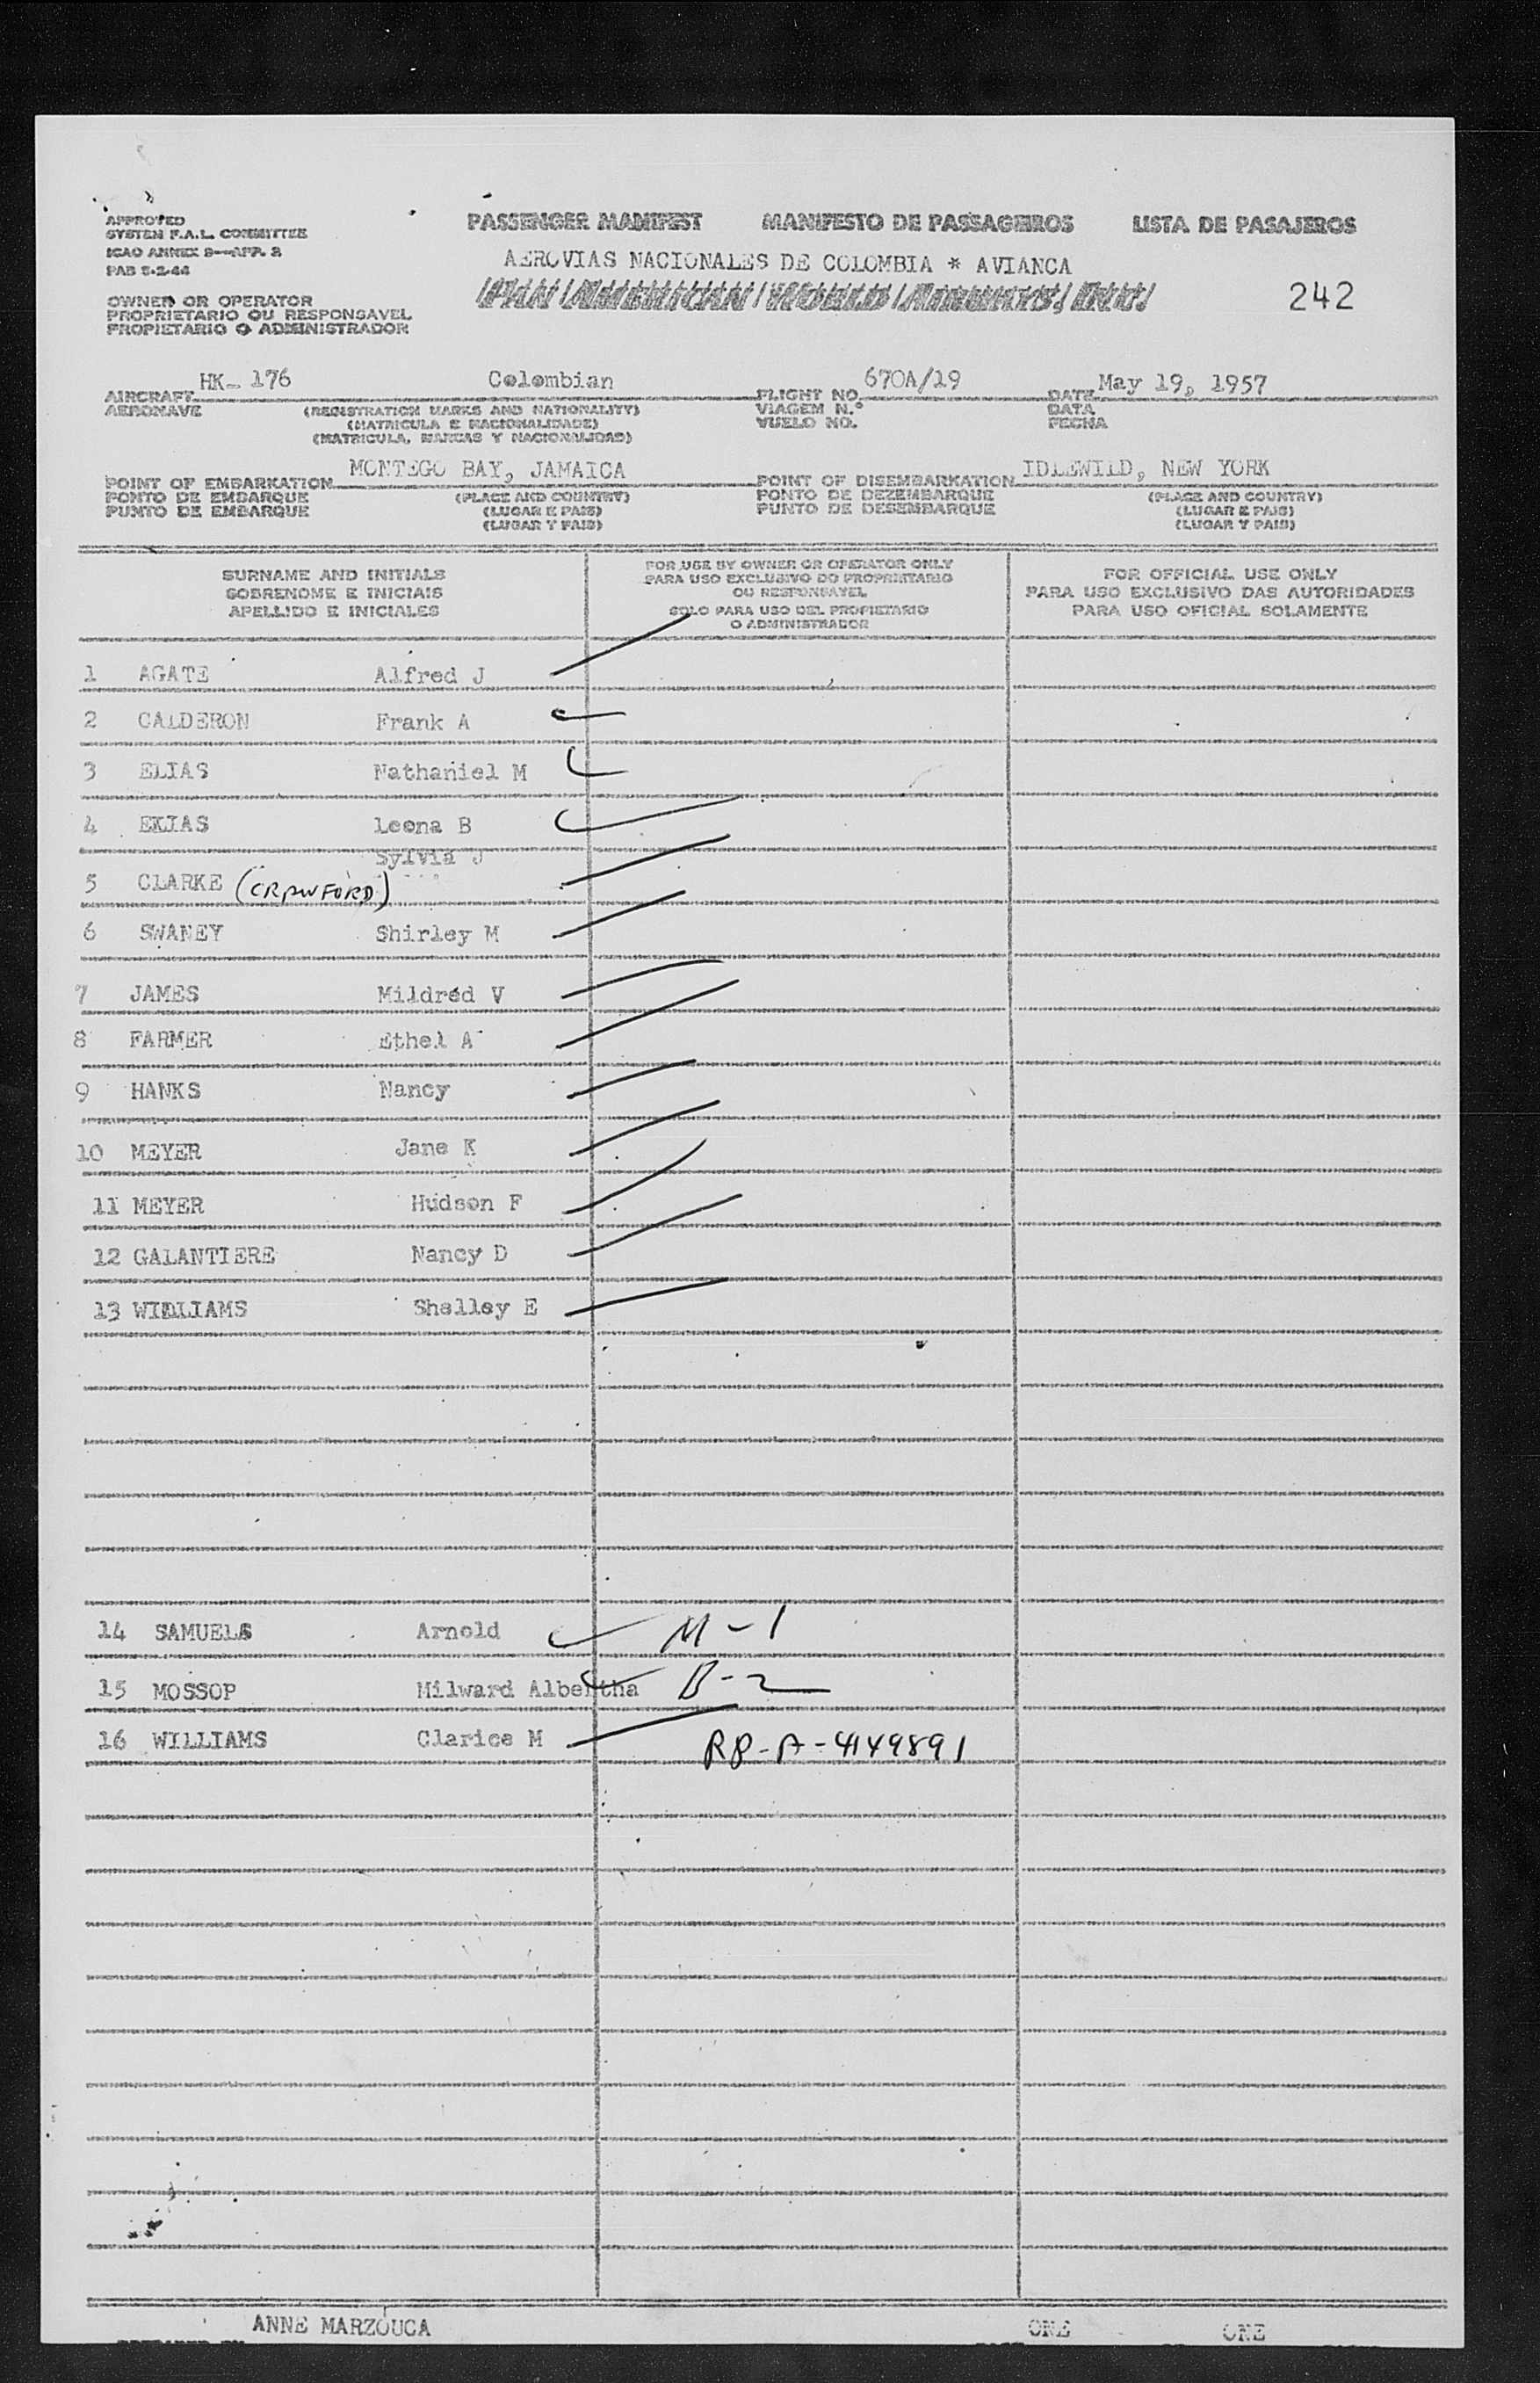 APPROVED
SYSTEM F.A.L. COMMITTEE
ICAO ANNEX 9—APP. 2
PAB 5-2-44
PASSENGER MANIFEST MANIFESTO DE PASSAGEIROS LISTA DE PASAJEROS
AEROVIAS NACIONALES DE COLOMBIA * AVIANCA
PAN AMERICAN WORLD AIRWAYS, INC.
242
OWNER OR OPERATOR
PROPRIETARIO OU RESPONSAVEL
PROPIETARIO O ADMINISTRADOR
AIRCRAFT HK- 176 Colombian FLIGHT NO. 670A/19 DATE May 19, 1957
AERONAVE (REGISTRATION MARKS AND NATIONALITY) VIAGEM N.° DATA
(MATRICULA E NACIONALIDADE) VUELO NO. FECHA
(MATRICULA, MARCAS Y NACIONALIDAD)
POINT OF EMBARKATION MONTEGO BAY, JAMAICA POINT OF DISEMBARKATION IDLEWILD, NEW YORK
PONTO DE EMBARQUE (PLACE AND COUNTRY) PONTO DE DEZEMBARQUE (PLACE AND COUNTRY)
PUNTO DE EMBARQUE (LUGAR E PAIS) PUNTO DE DESEMBARQUE (LUGAR E PAIS)
(LUGAR Y PAIS) (LUGAR Y PAIS)
SURNAME AND INITIALS
SOBRENOME E INICIAIS
APELLIDO E INICIALES
FOR USE BY OWNER OR OPERATOR ONLY
PARA USO EXCLUSIVO DO PROPRIETARIO
OU RESPONSAVEL
SOLO PARA USO DEL PROPIETARIO
O ADMINISTRADOR
FOR OFFICIAL USE ONLY
PARA USO EXCLUSIVO DAS AUTORIDADES
PARA USO OFICIAL SOLAMENTE
1 AGATE Alfred J
2 CALDERON Frank A
3 ELIAS Nathaniel M
4 ELIAS Leona B
Sylvia J
5 CLARKE (CRAWFORD)
6 SWANEY Shirley M
7 JAMES Mildred V
8 FARMER Ethel A
9 HANKS Nancy
10 MEYER Jane K
11 MEYER Hudson F
12 GALANTIERE Nancy D
13 WILLIAMS Shelley E
14 SAMUELS Arnold M-1
15 MOSSOP Milward Albertha B-2
16 WILLIAMS Clarice M RP-A-4149891
ANNE MARZOUCA ONE ONE